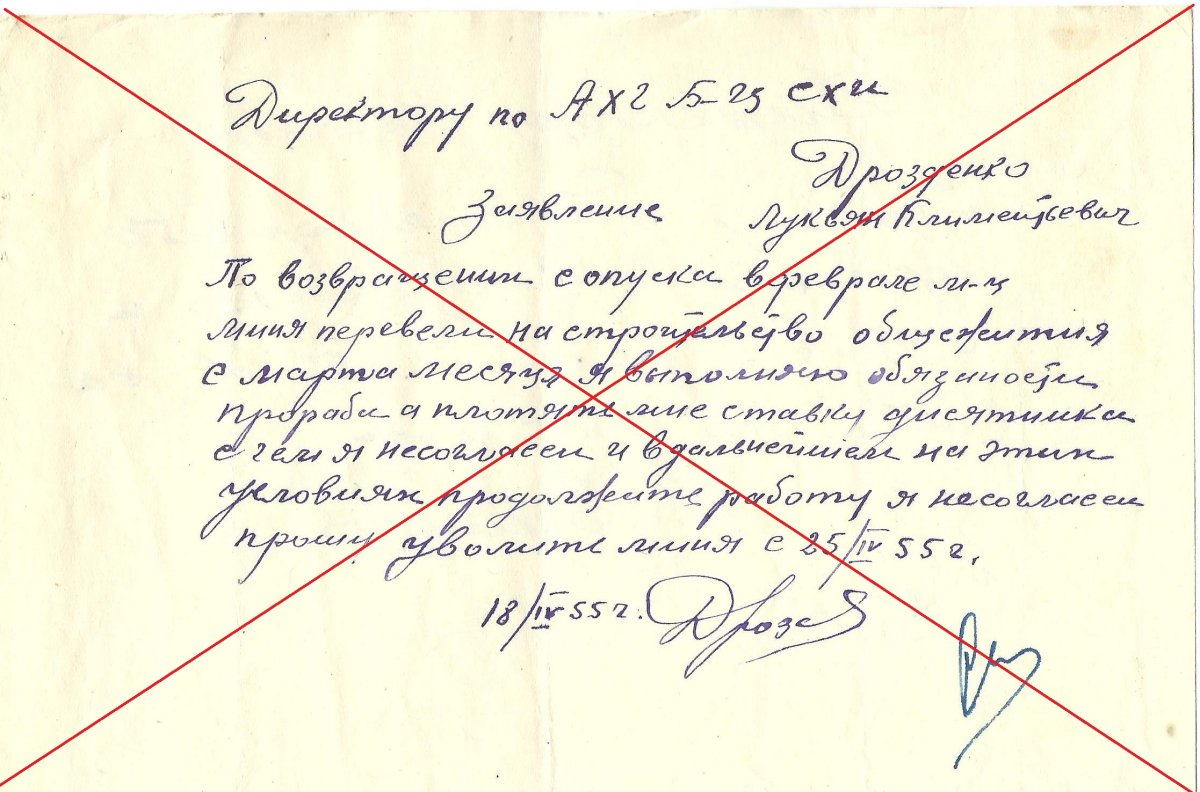 Директору по АХЧ Б-Ц СХИ
Дрозденко
Заявление Лукьян Климентьевич
По возвращении с опуска в феврале м-ц
миня перевели на строительство общежития
с марта месяца я выполняю обязаности
прораба а плотяте мне ставку дисятника
с чем я несогласен и в дальнейшем на этих
условиях продолжите работу я несогласен
прошу уволите миня с 25/IV 55 г.
18/IV 55 г.